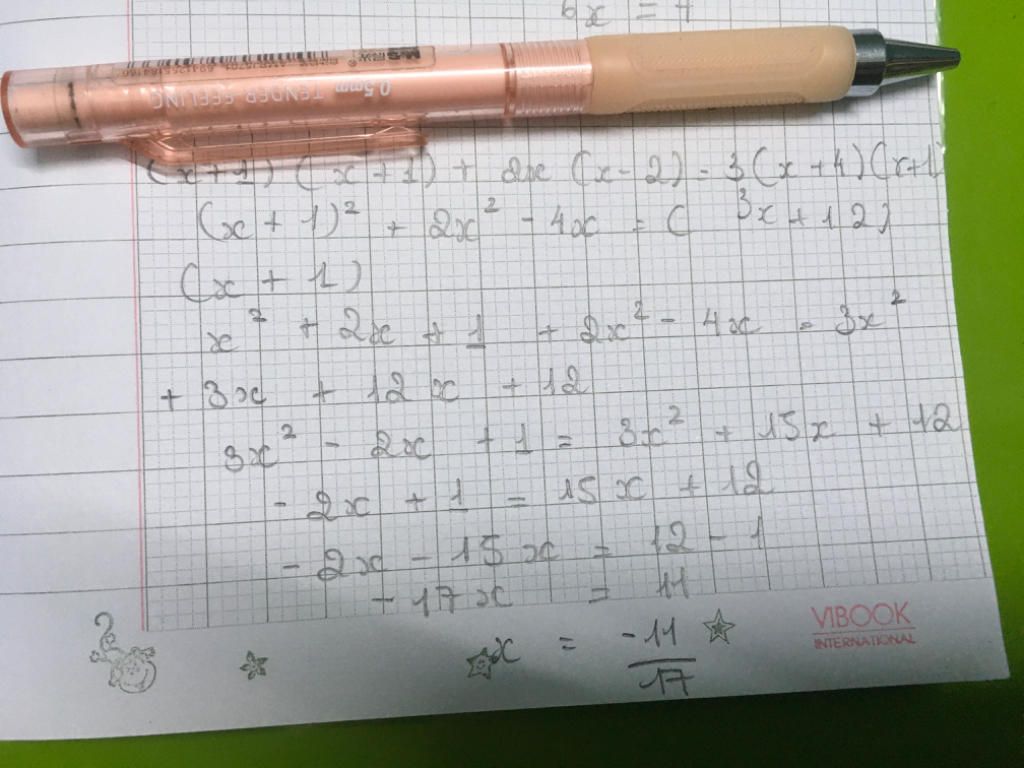 6x = 7
0.5mm TENDER FEELING
(x+1) (x+1) + 2x (x-2) = 3(x+4)(x+1)
(x + 1)² + 2x² - 4x = ( 3x + 12)
(x + 1)
x² + 2x + 1 + 2x² - 4x = 3x²
+ 3x + 12x + 12
3x² - 2x + 1 = 3x² + 15x + 12
- 2x + 1 = 15x + 12
- 2x - 15x = 12 - 1
- 17x = 11
x = -11/17
VIBOOK
INTERNATIONAL